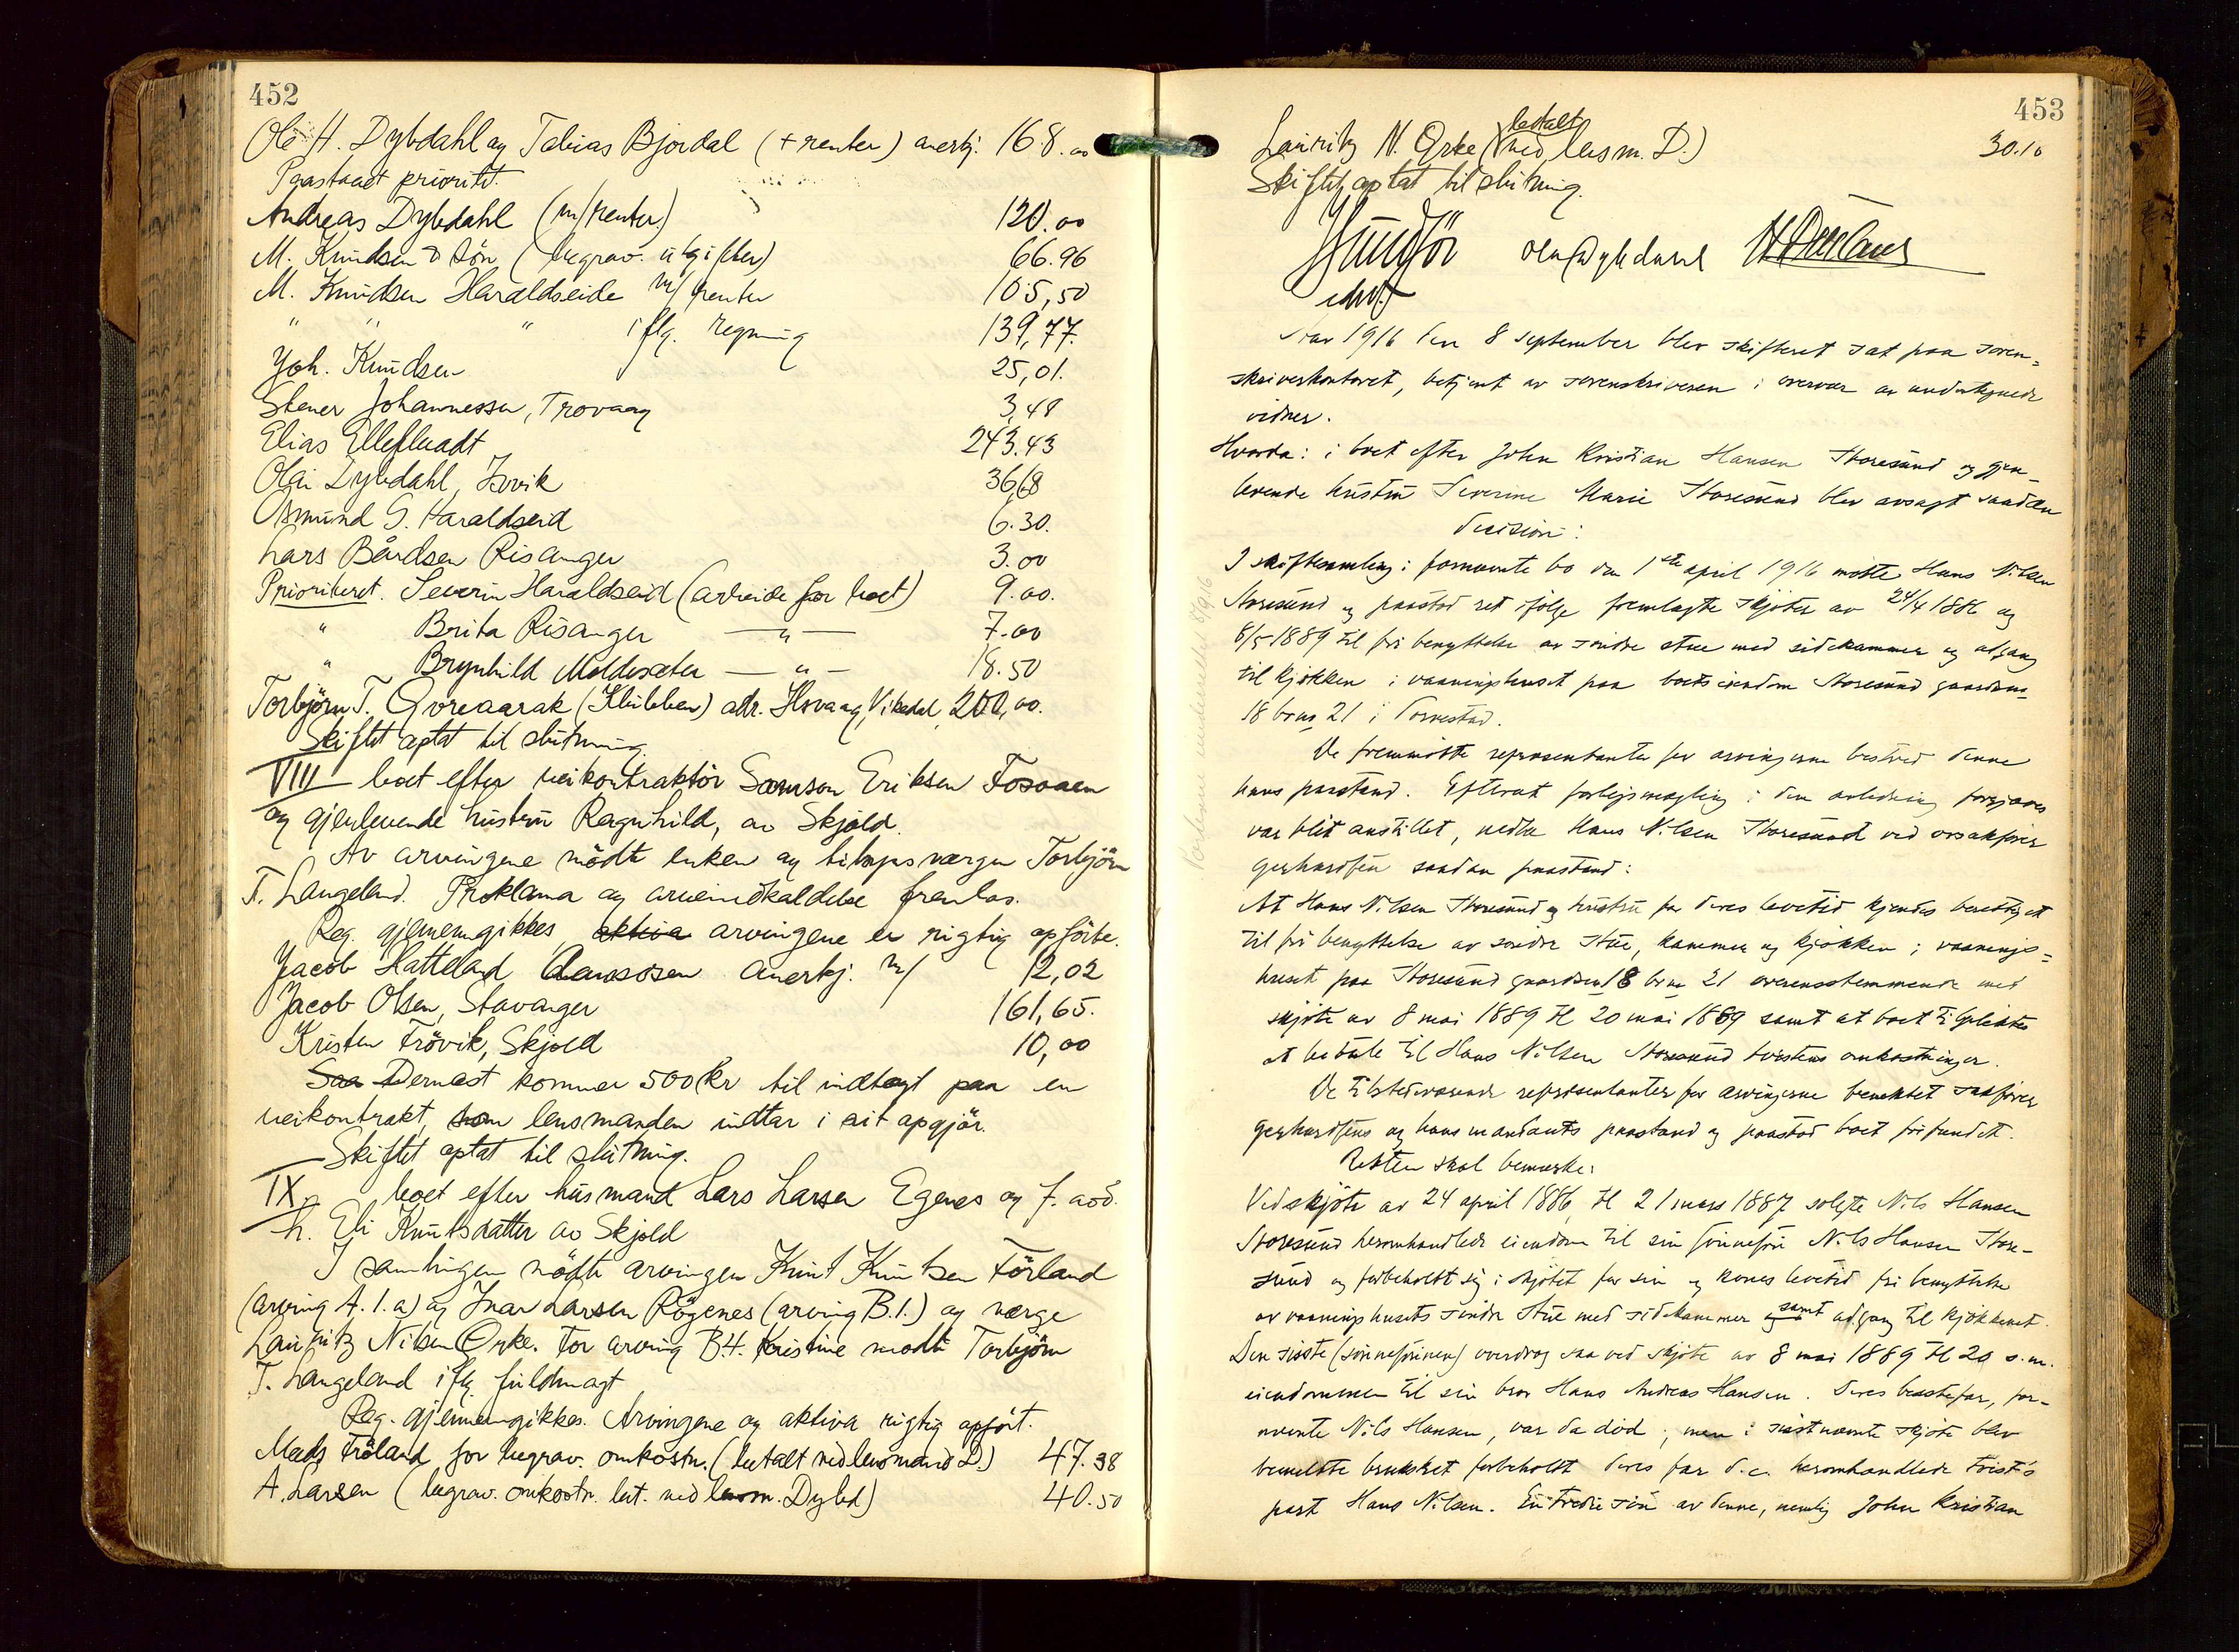 452
Ole H. Dybdahl og Tobias Bjordal (+ renter) anerkj. 168.00
Paastaaet prioritet.
Andreas Dybdahl (m/renter) 120.00
M. Knudsen & Sön (begrav. utgifter) 66.96
M. Knudsen Haraldseide m/ renter 105,50
" " " iflg. regning 139,77.
Joh. Knudsen 25,01.
Stener Johannessen, Trovaag 3,48
Elias 243.43
Olai Dybdahl, Isvik 36,68
Osmund S. Haraldseid 6.30.
Lars Bårdsen Risanger 3.00
Prioriteret. Severin Haraldseid (arbeide for boet) 9.00.
" Brita Risanger — " — 7.00
" Brynhild Moldeseter — " — 18.50
Torbjörn T. (Klubben) adr. Hovaag, Vikedal 200,00.
Skiftet optat til slutning.
VIII boet efter veikontraktör Samson Eriksen Fosaaen
og gjenlevende hustru Ragnhild, av Skjold.
Av arvingene mödte enken og tilsynsverge Torbjörn
T. Langeland. Proklama og arveindkaldelse fremlas.
Reg. gjennemgikkes aktiva arvingene er rigtig opförte.
Jacob Hatteland anerkj. m/ 12,02
Jacob Olsen, Stavanger 161,65.
Kristen Frövik, Skjold 10,00
Saa Dernæst kommer 500 kr til indtægt paa en
veikontrakt, som lensmanden indtar i sit opgjör.
Skiftet optat til slutning.
IX. boet efter husmand Lars Larsen Egenes og f. avd.
h. Eli Knutsdatter av Skjold
I samlingen mödte arvingen Knut Knutsen Förland
(arving A. 1. a) og Ivar Larsen Rögenes (arving B. 1.) og værge
Lauritz Nilsen Örke. For arving B4. Kristine mödte Torbjörn
T. Langeland iflg. fuldmagt
Reg. gjennemgikkes. Arvingene og aktiva rigtig opfört.
Mads Fröland for begrav. omkostn. (betalt ved lensmand D.) 47.38
A. Larsen (begrav. omkostn. bet. ved lensm. Dybd) 40.50
453
Lauritz N. Örke (betalt ved lensm. D.) 30.10
Skiftet optat til slutning.
Aar 1916 den 8 september blev skifteret sat paa soren-
skriverkontoret, betjent av sorenskriveren i overvær av undertegnede
vidner.
Hvorda: i boet efter John Kristian Hansen Storesund og gjen-
levende hustru Severine Marie Storesund blev avsagt saadan
decision:
I skiftesamling i fornævnte bo den 1ste april 1916 mötte Hans Nilsen
Storesund og paastod ret ifölge fremlagte skjöter av 24/4 1886 og
8/5 1889 til fri benyttelse av söndre stue med sidekammer og adgang
til kjökken i vaaningshuset paa boets eiendom Storesund gaardsnr
18 brnr 21 i Torvestad.
De fremmötte representanter for arvingerne bestred denne
hans paastand. Efterat forliksmægling i den anledning forgjæves
var blit anstillet, nedla Hans Nilsen Storesund ved overretssakförer
Gerhardsen saadan paastand:
At Hans Nilsen Storesund og hustru for deres levetid kjendes berettiget
til fri benyttelse av söndre stue, kammer og kjökken i vaanings-
huset paa Storesund gaardsnr 18 brnr 21 overensstemmende med
skjöte av 8 mai 1889 tl 20 mai 1889 samt at boet tilpligtes
at betale til Hans Nilsen Storesund tvistens omkostninger.
De tilstedeværende representanter for arvingerne benektet sakförer
Gerhardsens og hans mandants paastand og paastod boet frifundet.
Retten skal bemerke:
Ved skjöte av 24 april 1886, tl 21 mars 1887 solgte Nils Hansen
Storesund heromhandlede eiendom til sin sönnesön Nils Hansen Store-
sund og forbeholdt sig i skjötet for sin og kones levetid fri benyttelse
av vaaningshusets söndre stue med sidekammer og samt adgang til kjökkenet.
Den sidste (sönnesönnen) overdrog saa ved skjöte av 8 mai 1889 tl 20 s.m.
eiendommen til sin bror Hans Andreas Hansen. Deres bestefar, for-
nevnte Nils Hansen, var da död; men i sidstnævnte skjöte blev
bemeldte bruksret forbeholdt deres far d.e. heromhandlede tvists
part Hans Nilsen. En tredie sön av denne, nemlig John Kristian